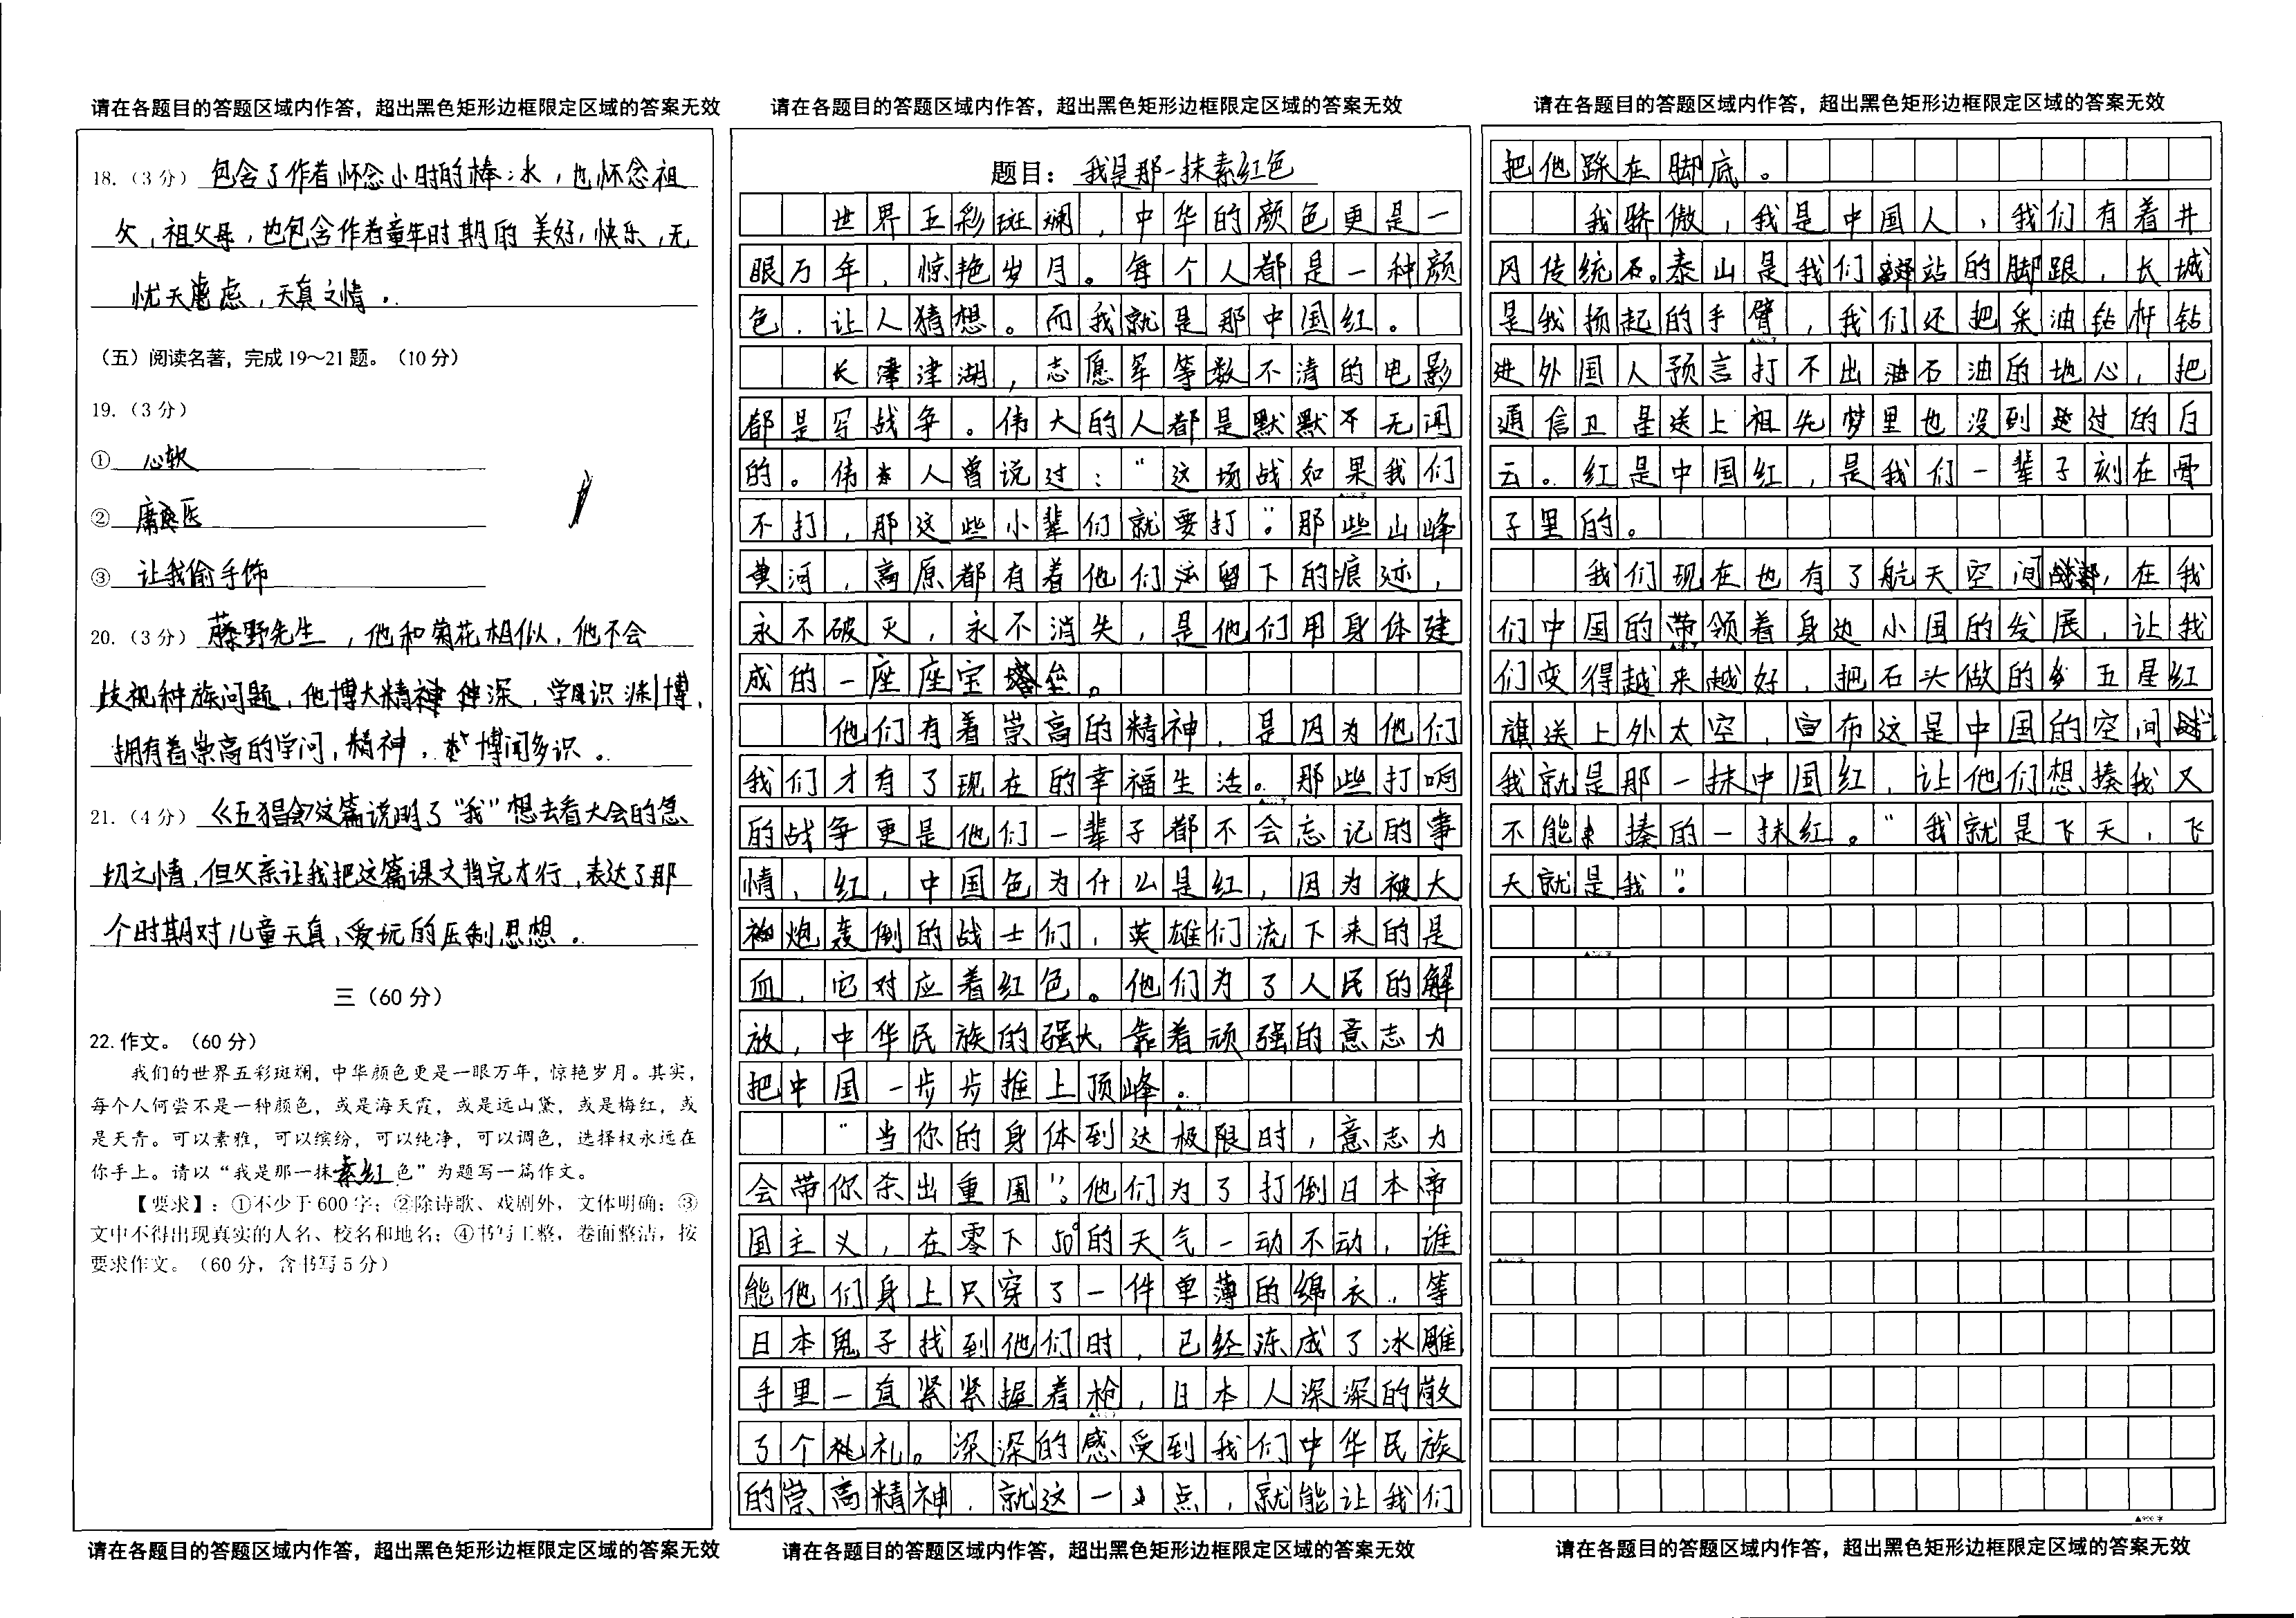 请在各题目的答题区域内作答，超出黑色矩形边框限定区域的答案无效
18.（3分）包含了作者怀念小时的棒冰，也怀念祖
父，祖父母，也包含作者童年时期的美好，快乐，无
忧无虑，天真之情。
（五）阅读名著，完成19～21题。（10分）
19.（3分）
① 心软
② 庸医
③ 让我偷手饰
20.（3分）藤野先生，他和菊花相似，他不会
歧视种族问题，他博大精深，学识渊博，
拥有着崇高的学问，精神，博闻多识。
21.（4分）《五猖会》这篇说明了“我”想去看大会的急
切之情，但父亲让我把这篇课文背完才行，表达了那
个时期对儿童天真，爱玩的压制思想。
三（60分）
22.作文。（60分）
我们的世界五彩斑斓，中华颜色更是一眼万年，惊艳岁月。其实，
每个人何尝不是一种颜色，或是海天霞，或是远山黛，或是梅红，或
是天青。可以素雅，可以缤纷，可以纯净，可以调色，选择权永远在
你手上。请以“我是那一抹素红色”为题写一篇作文。
【要求】：①不少于600字；②除诗歌、戏剧外，文体明确；③
文中不得出现真实的人名、校名和地名；④书写工整，卷面整洁，按
要求作文。（60分，含书写5分）
请在各题目的答题区域内作答，超出黑色矩形边框限定区域的答案无效
请在各题目的答题区域内作答，超出黑色矩形边框限定区域的答案无效
题目：我是那一抹素红色
世界五彩斑斓，中华的颜色更是一
眼万年，惊艳岁月。每个人都是一种颜
色，让人猜想。而我就是那中国红。
长津湖，志愿军等数不清的电影
都是写战争。伟大的人都是默默不无闻
的。伟人曾说过：“这场战如果我们
不打，那这些小辈们就要打”。那些山峰
黄河，高原都有着他们留下的痕迹，
永不破灭，永不消失，是他们用身体建
成的一座座宝垒。
他们有着崇高的精神，是因为他们
我们才有了现在的幸福生活。那些打响
的战争更是他们一辈子都不会忘记的事
情，红，中国色为什么是红，因为被大
炮轰倒的战士们，英雄们流下来的是
血，它对应着红色。他们为了人民的解
放，中华民族的强大，靠着顽强的意志力
把中国一步步推上顶峰。
“当你的身体到达极限时，意志力
会带你杀出重围”。他们为了打倒日本帝
国主义，在零下50°的天气一动不动，谁
能他们身上只穿了一件单薄的绵衣，等
日本鬼子找到他们时，已经冻成了冰雕
手里一直紧紧握着枪，日本人深深的敬
了个礼。深深的感受到我们中华民族
的崇高精神，就这一点，就能让我们
请在各题目的答题区域内作答，超出黑色矩形边框限定区域的答案无效
请在各题目的答题区域内作答，超出黑色矩形边框限定区域的答案无效
把他跺在脚底。
我骄傲，我是中国人，我们有着井
冈传统石。泰山是我们站的脚跟，长城
是我扬起的手臂，我们还把采油钻杆钻
进外国人预言打不出石油的地心，把
通信卫星送上祖先梦里也没到过的白
云。红是中国红，是我们一辈子刻在骨
子里的。
我们现在也有了航天空间，在我
们中国的带领着身边小国的发展，让我
们变得越来越好，把石头做的五星红
旗送上外太空，宣布这是中国的空间
我就是那一抹中国红，让他们想揍我又
不能揍的一抹红。“我就是飞天，飞
天就是我”。
▲900字
请在各题目的答题区域内作答，超出黑色矩形边框限定区域的答案无效